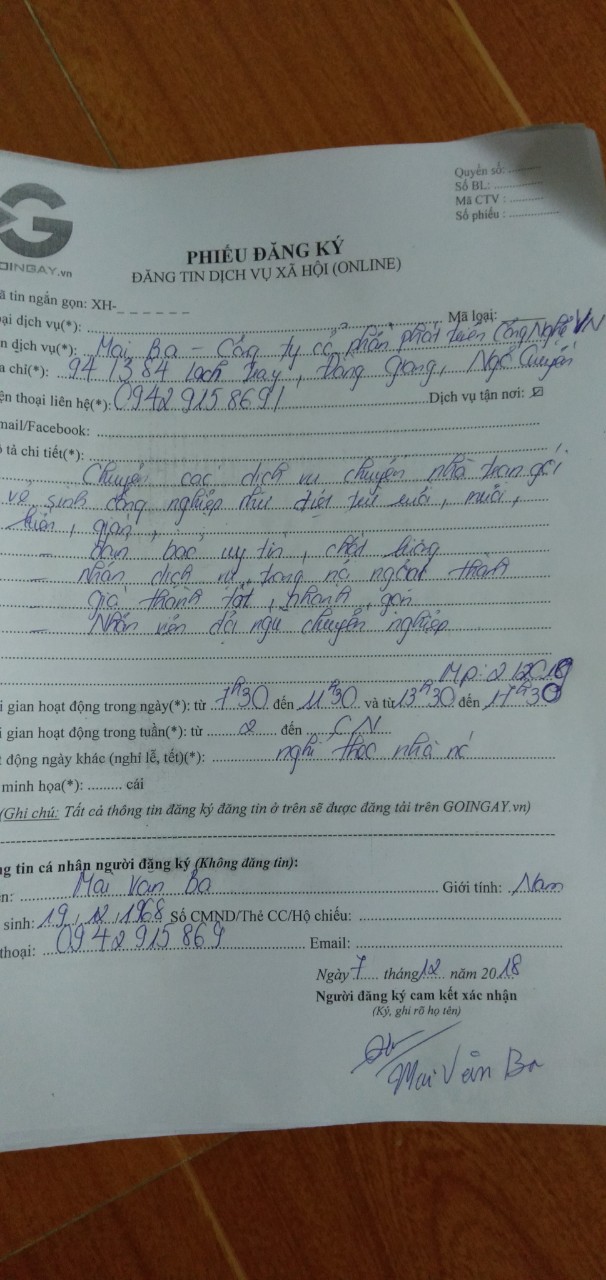 Quyển số: ............
Số BL: ...............
Mã CTV : ............
Số phiếu : ...............
GOINGAY.vn
PHIẾU ĐĂNG KÝ
ĐĂNG TIN DỊCH VỤ XÃ HỘI (ONLINE)
ã tin ngắn gọn: XH-_ _ _ _ _ _
ại dịch vụ(*): ............ Mã loại:
n dịch vụ(*): Mai Ba - Công ty cổ phần phát triển Công Nghệ VN
a chỉ(*): 94 1384 Lạch tray, Đằng Giang, Ngô Quyền
ện thoại liên hệ(*): 0942 915 869/ Dịch vụ tận nơi: ☑
mail/Facebook: ............
ô tả chi tiết(*): ............
Chuyên các dịch vụ chuyển nhà trọn gói
vệ sinh công nghiệp như diệt muỗi,
, gián,
- Đảm bảo uy tín, chất lượng
- Nhận dịch vụ trong nội ngoại thành
giá thành tốt, nhanh, gọn
- Nhân viên đội ngũ chuyên nghiệp
i gian hoạt động trong ngày(*): từ 7h30 đến 11h30 và từ 13h30 đến 17h30
i gian hoạt động trong tuần(*): từ 2 đến CN
t động ngày khác (nghỉ lễ, tết)(*): nghỉ theo nhà nc
minh họa(*): ......... cái
(Ghi chú: Tất cả thông tin đăng ký đăng tin ở trên sẽ được đăng tải trên GOINGAY.vn)
ng tin cá nhân người đăng ký (Không đăng tin):
n: Mai Văn Ba Giới tính: Nam
sinh: 19/12/1968 Số CMND/Thẻ CC/Hộ chiếu: ............
thoại: 0942 915 869 Email: ............
Ngày 7 tháng 12 năm 2018
Người đăng ký cam kết xác nhận
(Ký, ghi rõ họ tên)
Mai Văn Ba